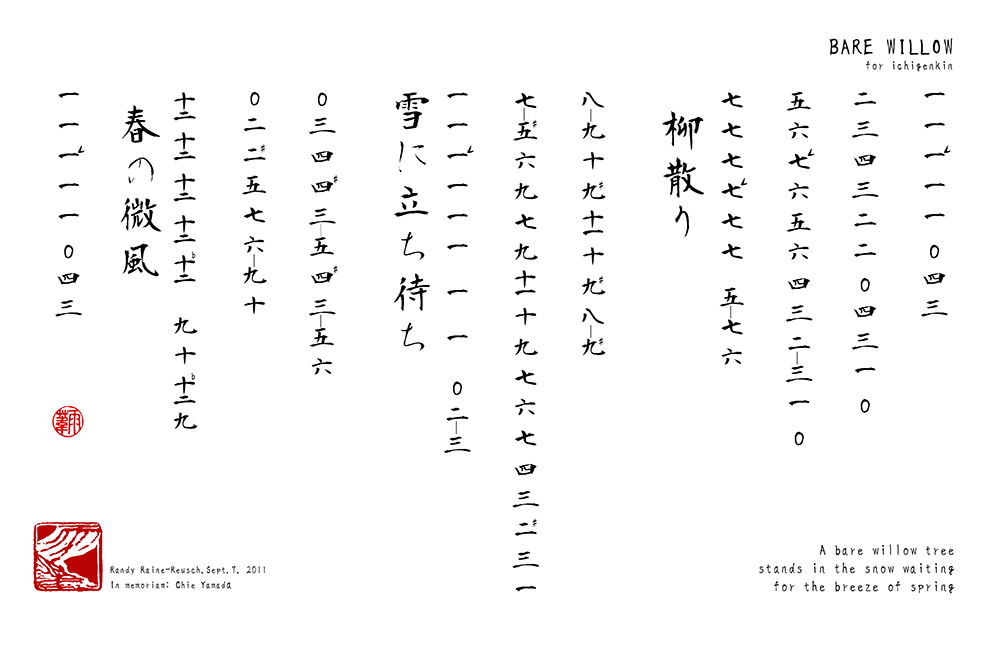 BARE WILLOW
for ichigenkin
一 一 一∠ 一 一 〇 四 三
二 三 四 三 二 二 〇 四 三 一 〇
五 六 七∠ 六 五 六 四 三 二|三 一 〇
七 七 七 七∠ 七 七 五|七 六
柳散り
八|九 十 九♯ 十一 十 九♯ 八|九♯
七|五♯ 六 九 七 九 十一 十 九 七 六 七 四 三 二♯ 三 一
一 一 一∠ 一 一 一 一 一 〇 二|三
雪に立ち待ち
〇 三 四 四♯ 三|五 四♯ 三|五 六
〇 二 二♯ 五 七 六|九 十
十二 十二 十二 十二 十二♭ 九 十 十二♭ 九
春の微風
一 一 一∠ 一 一 〇 四 三
A bare willow tree
stands in the snow waiting
for the breeze of spring
Randy Raine-Reusch. Sept. 7, 2011
In memoriam: Chie Yamada